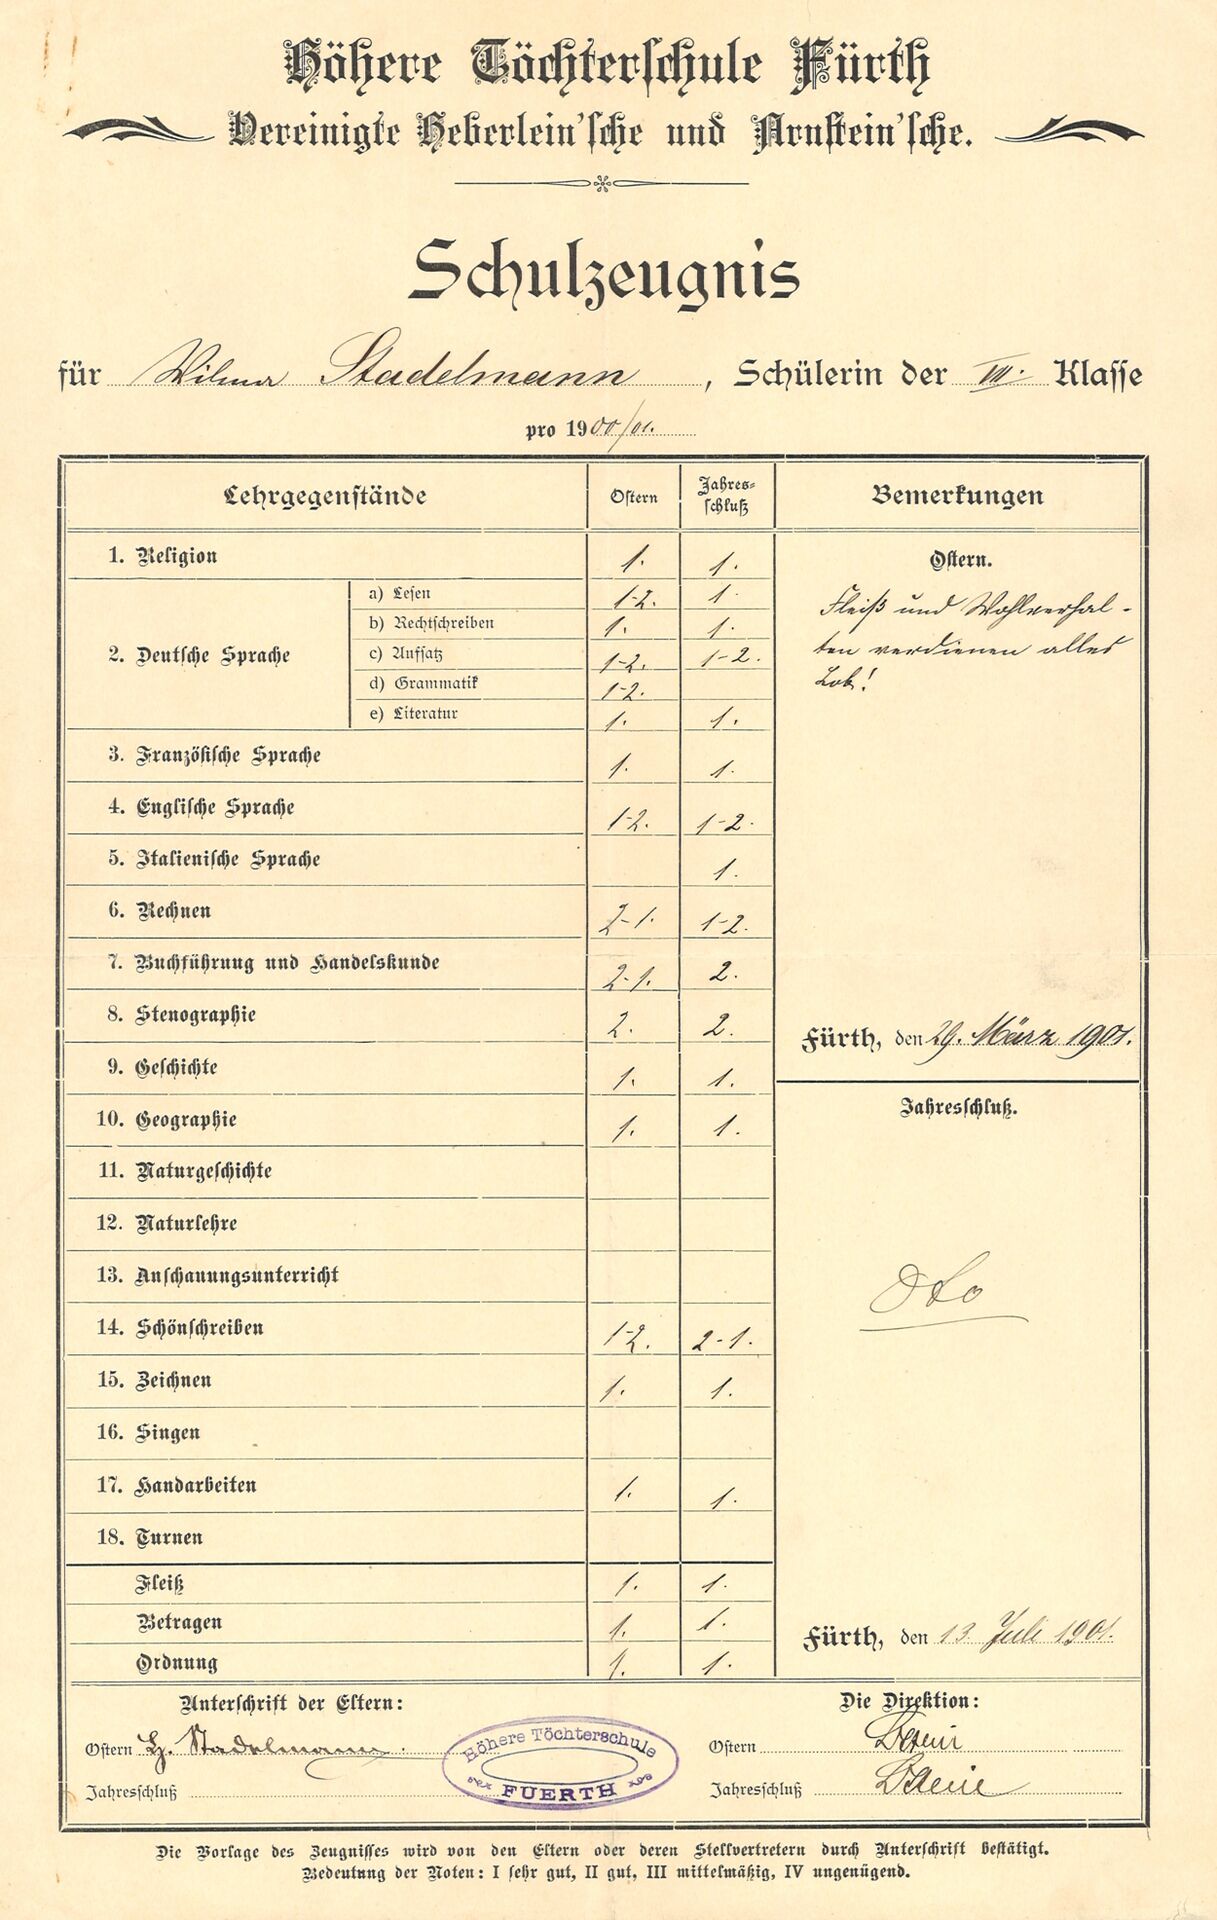 Höhere Töchterschule Fürth
Vereinigte Heberlein'sche und Arnstein'sche.
Schulzeugnis
für Wilma Stadelmann, Schülerin der III. Klasse
pro 1900/01.
Lehrgegenstände Ostern Jahres-schluß Bemerkungen
1. Religion 1. 1.
2. Deutsche Sprache
a) Lesen 1-2. 1.
b) Rechtschreiben 1. 1.
c) Aufsatz 1-2. 1-2.
d) Grammatik 1-2.
e) Literatur 1. 1.
3. Französische Sprache 1. 1.
4. Englische Sprache 1-2. 1-2.
5. Italienische Sprache 1.
6. Rechnen 2-1. 1-2.
7. Buchführung und Handelskunde 2-1. 2.
8. Stenographie 2. 2.
9. Geschichte 1. 1.
10. Geographie 1. 1.
11. Naturgeschichte
12. Naturlehre
13. Anschauungsunterricht
14. Schönschreiben 1-2. 2-1.
15. Zeichnen 1. 1.
16. Singen
17. Handarbeiten 1. 1.
18. Turnen
Fleiß 1. 1.
Betragen 1. 1.
Ordnung 1. 1.
Ostern.
Fleiß und Wohlverhal-
ten verdienen alles
Lob!
Fürth, den 29. März 1901.
Jahresschluß.
Dto
Fürth, den 13. Juli 1901.
Unterschrift der Eltern:
Ostern H. Stadelmann.
Jahresschluß
Höhere Töchterschule
FUERTH
Die Direktion:
Ostern
Jahresschluß
Die Vorlage des Zeugnisses wird von den Eltern oder deren Stellvertretern durch Unterschrift bestätigt.
Bedeutung der Noten: I sehr gut, II gut, III mittelmäßig, IV ungenügend.